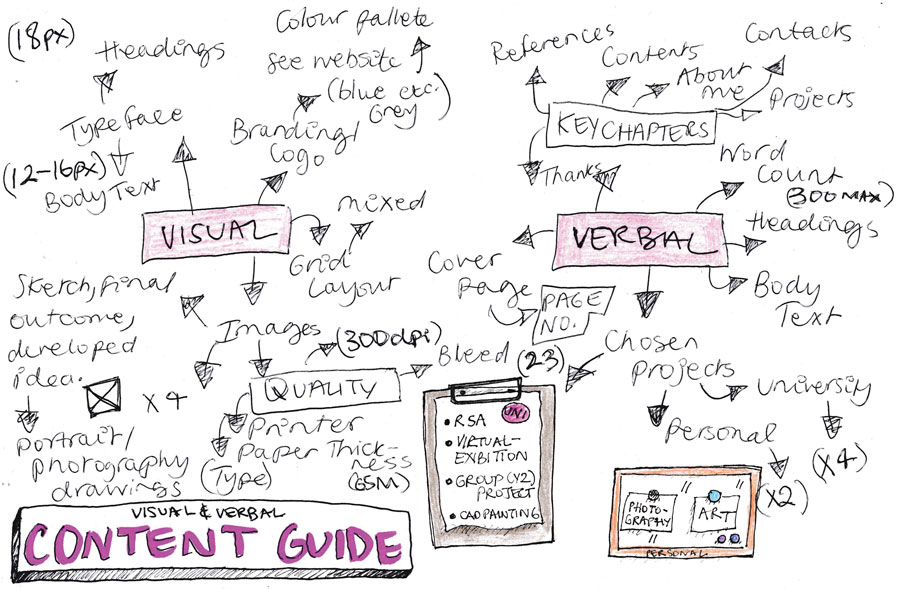 (18px)
Headings
Typeface
(12-16px)
Body Text
Colour pallete
see website
(blue etc.
Grey)
Branding/
Logo
VISUAL
mixed
Grid
Layout
Sketch, final
outcome,
developed
idea.
x4
portrait/
photography
drawings
Images
(300dpi)
QUALITY
Bleed
Printer
Paper Thick-
ness
(Type)
(GSM)
VISUAL & VERBAL
CONTENT GUIDE
References
Contents
About
me
Contacts
Projects
KEY CHAPTERS
Thanks
Word
Count
(300 MAX)
VERBAL
Headings
Body
Text
Cover
Page
PAGE
NO.
(23)
Chosen
Projects
University
(x4)
Personal
(x2)
UNI
• RSA
• VIRTUAL-
EXIBITION
• GROUP (Y2)
PROJECT
• CAD PAINTING
PHOTO-
GRAPHY
ART
PERSONAL